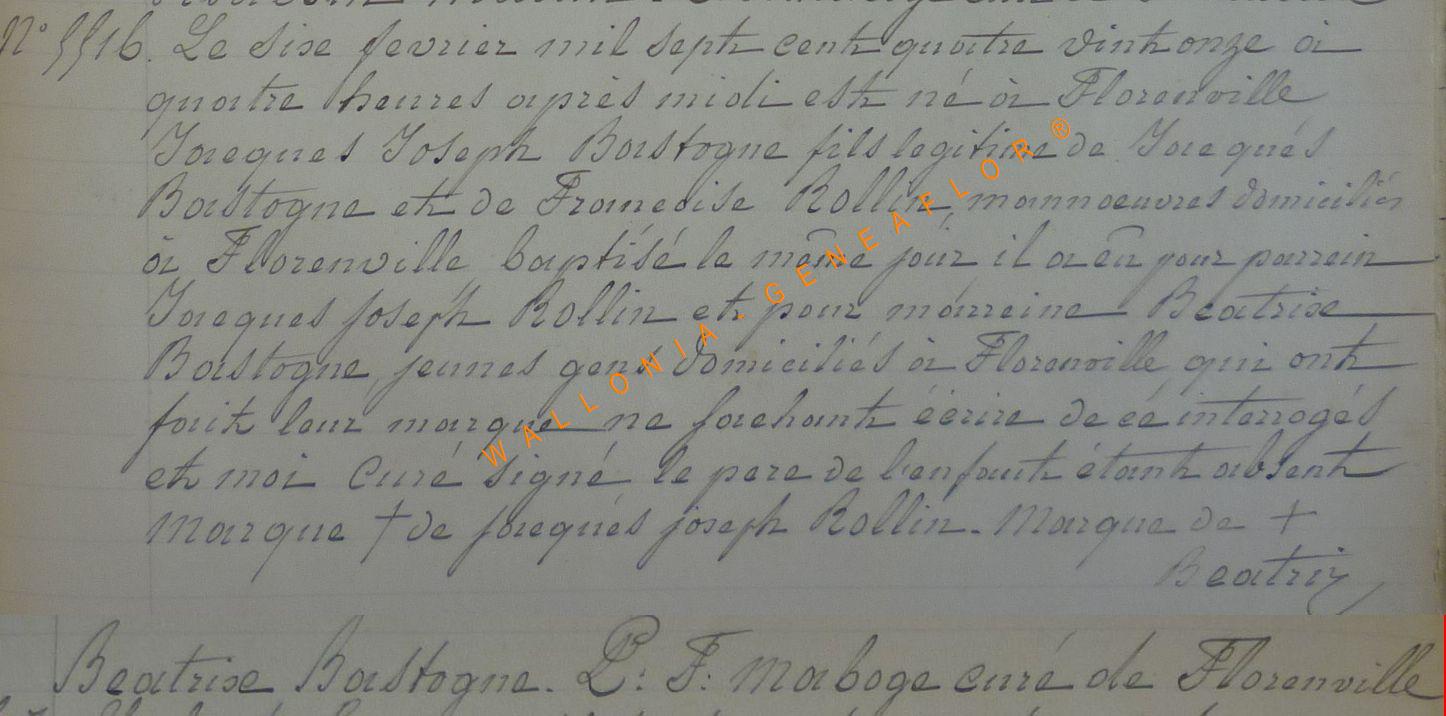 N° 5516. Le sixe fevrier mil sept cent quatre vint onze à
quatre heures après midi est né à Florenville
Jacques Joseph Bastogne fils legitime de Jacqués
Bastogne et de Francoise Rollin, mannoeuvres domiciliés
à Florenville baptisé le même jour il a eû pour parrein
Jacques joseph Rollin et pour marreine Beatrixe
Bastogne, jeunes gens domiciliés à Florenville, qui ont
fait leur marque ne sachant écrire de ce interrogés
et moi Curé signé le pere de l'enfant étant absent
Marque + de jacqués joseph Rollin. Marque de +
Beatrix
Beatrixe Bastogne. P: F: Maboge curé de Florenville
WALLONIA - GENEAFLOR ®